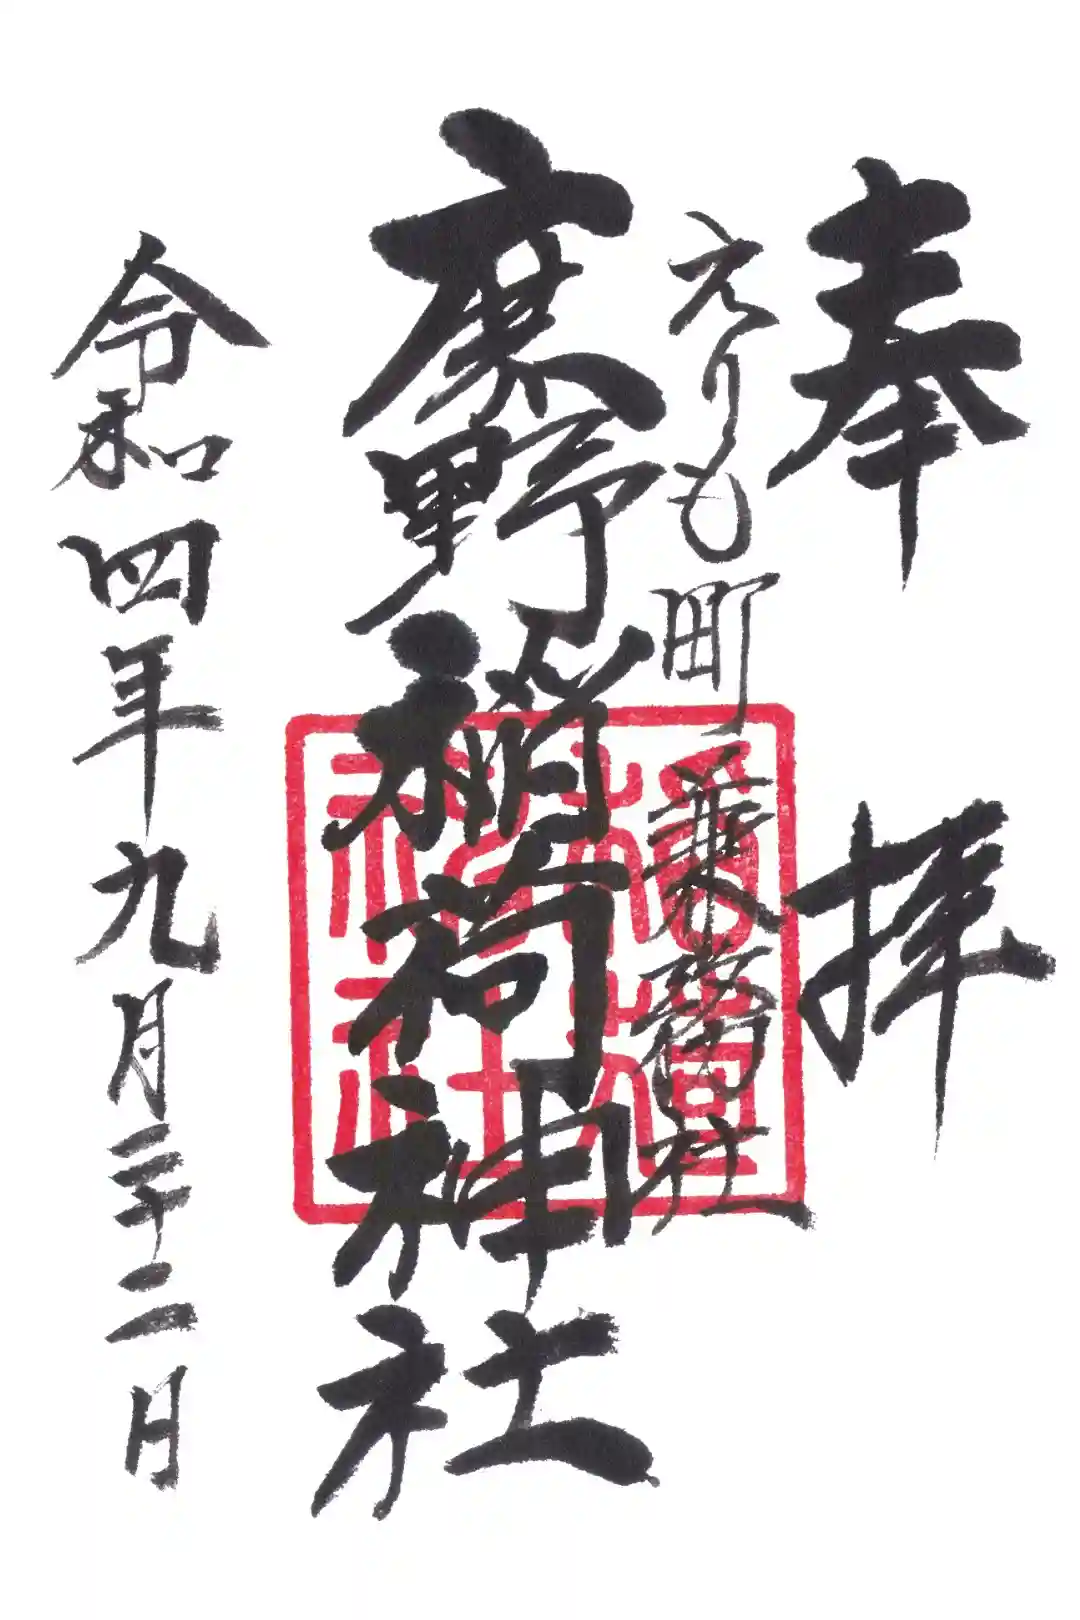 奉拝
えりも町兼務社
庶野稲荷神社
令和四年九月二十二日
神社